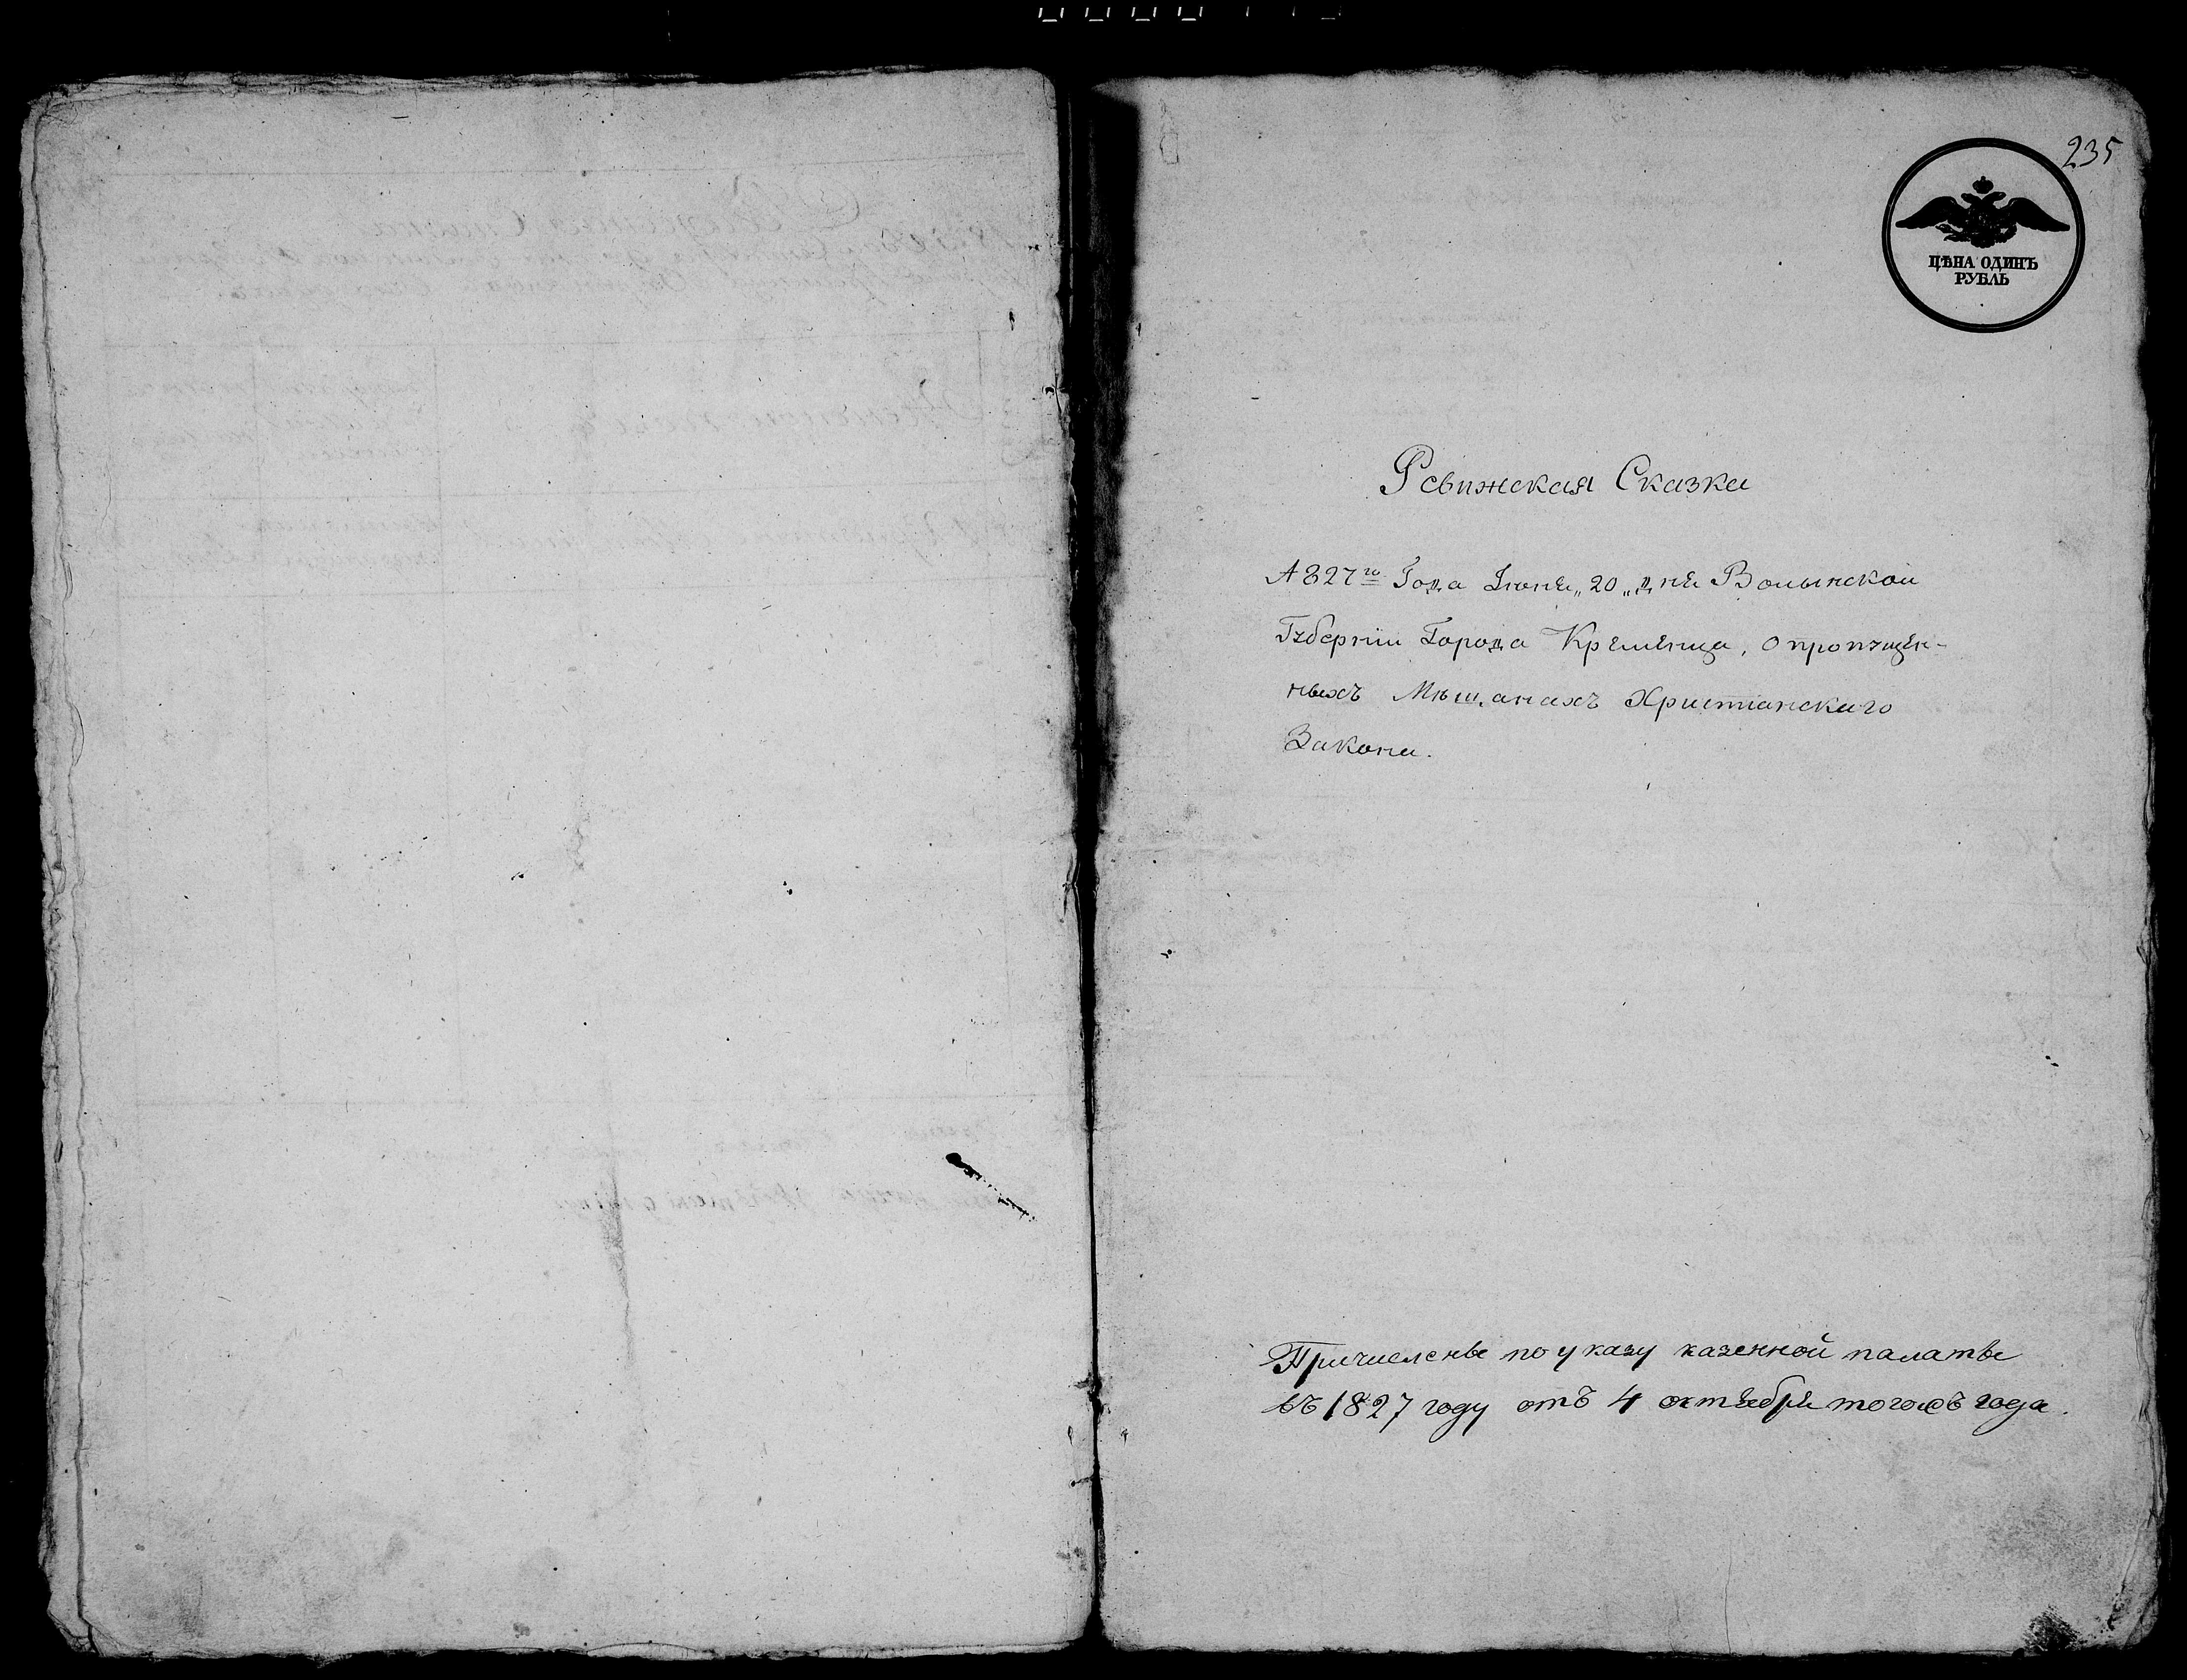 235
ЦѢНА ОДИНЪ
РУБЛЬ
Ревижская Сказка
1827го Года Іюня „20„ дня Волынской
Губерніи Города Кремѣнца, о пропущен-
ныхъ Мѣщанахъ Христіанскаго
Закона.
Причислены по указу казенной палаты
въ 1827 году отъ 4 октября тогожъ года.